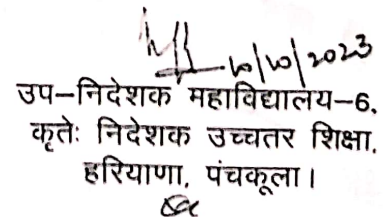 10/10/2023
उप–निदेशक महाविद्यालय–6,
कृतेः निदेशक उच्चतर शिक्षा,
हरियाणा, पंचकूला।